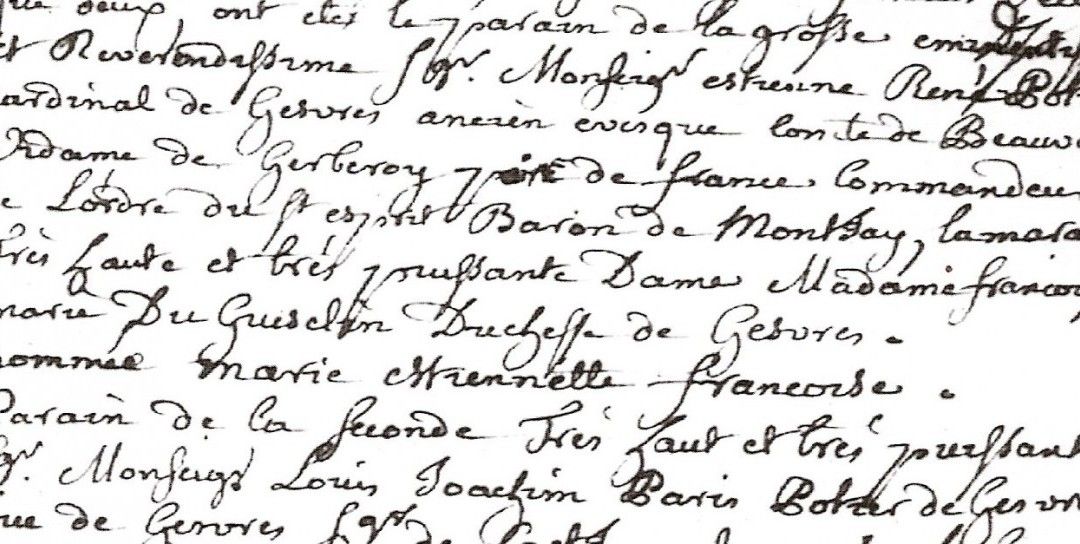 deux, ont etes le parain de la grosse
et Reverendissime Sgr. Monseigr estienne René Pot
ardinal de Gesvres ancien evesque Conte de Beauv
idame de Gerberoy pair de france Commandeu
e L'ordre du St esprit Baron de Montjay, la mara
très haute et très puissante Dame Madame francoi
marie Du Guesclin Duchesse de Gesvres.
nommée marie estiennette francoise.
Parain de la seconde Très haut et très puissant
gr. Monseigr Louis Joachim Paris Potier de Gesvr
de Gesvres Sgr de